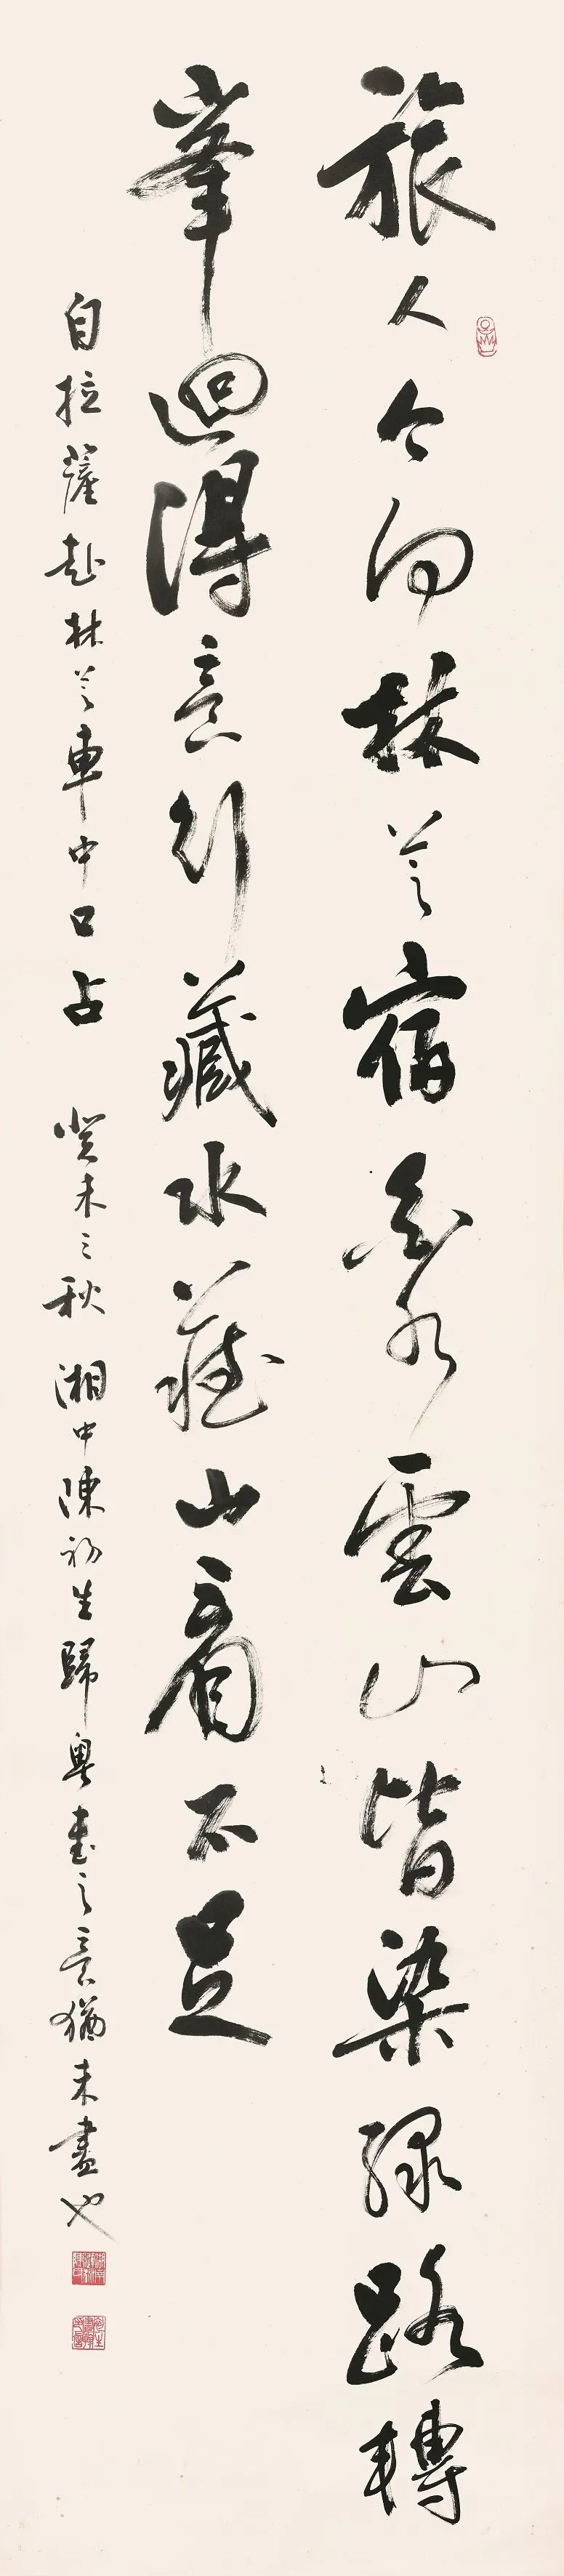 旅人今向林芝宿水雲山皆染綠路轉
峯迴得意行藏水藏山看不足
自拉薩赴林芝車中口占 癸未之秋 湘中陳初生歸粵書之意猶未盡也